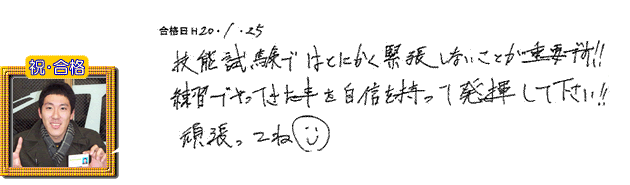 合格日 H20・1・25
祝・合格
技能試験ではとにかく緊張しないことが重要です!!
練習でやってきた事を自信を持って発揮して下さい!!
頑張ってね